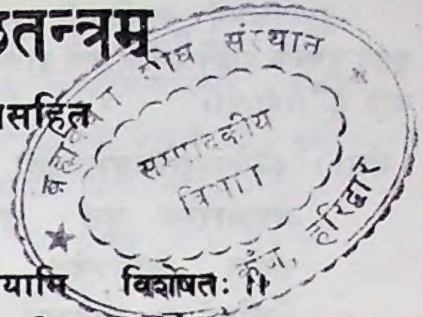 तन्त्रम्
सहित
शोध संस्थान
सम्पादकीय
विभाग
हरिद्वार
यामि विशेषतः ॥